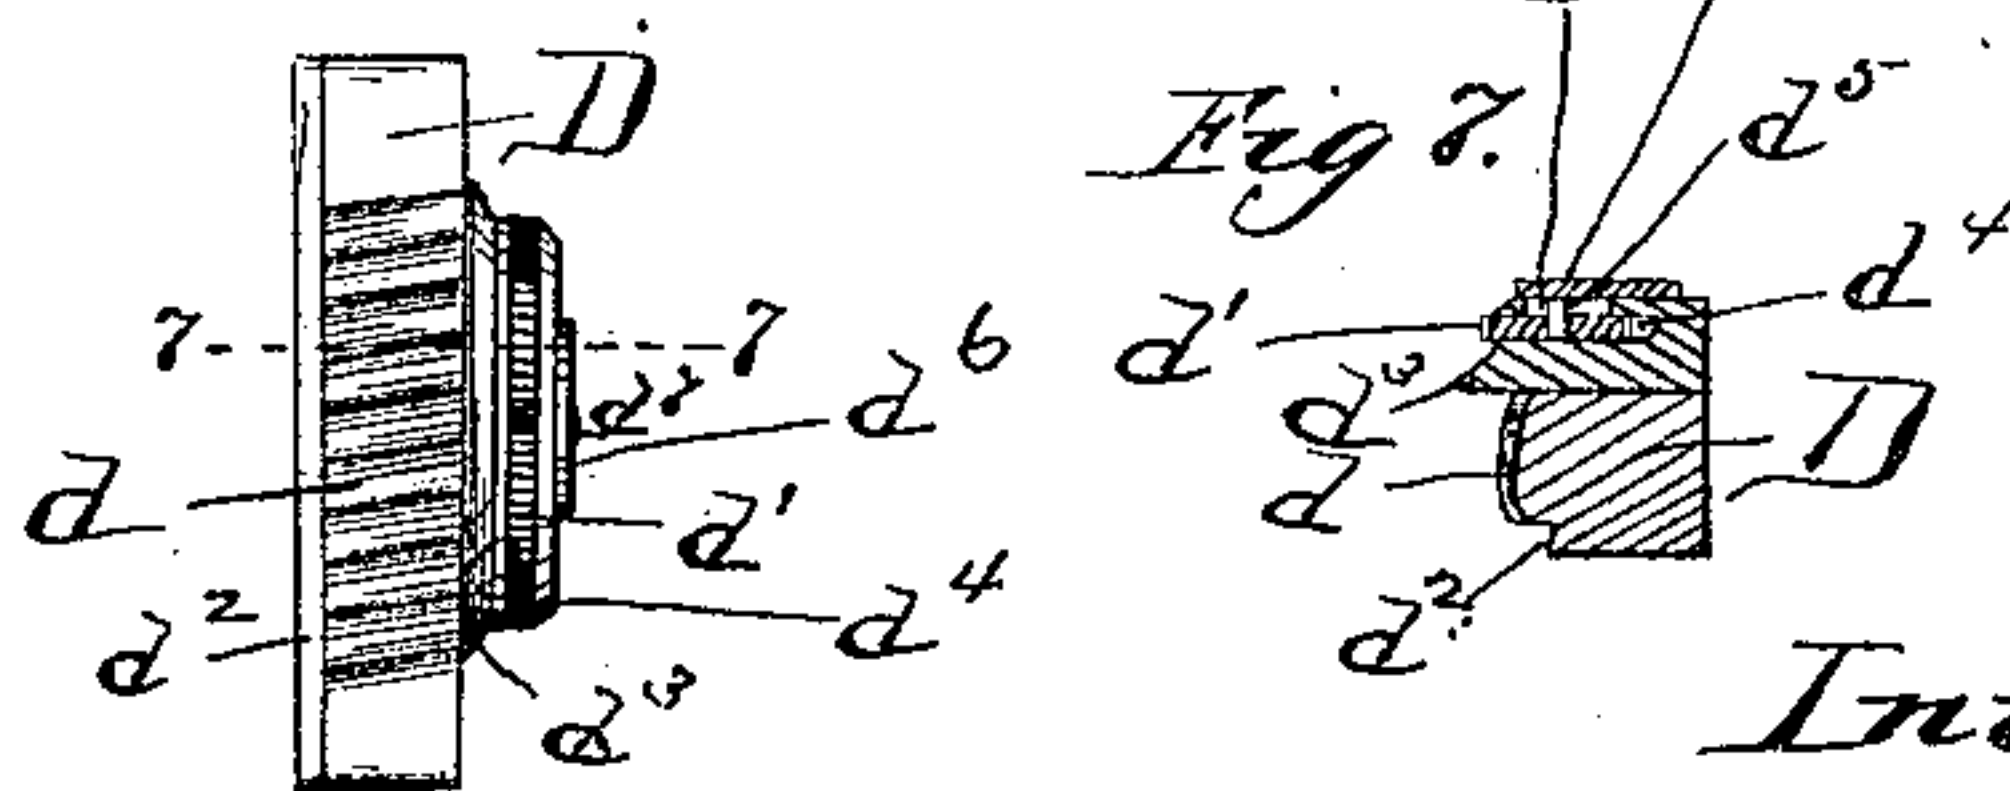 D
7 7
d⁷
d⁶
d
d'
d²
d⁴
d³
Fig 7.
d⁵
d⁴
d'
d³
D
d
d²